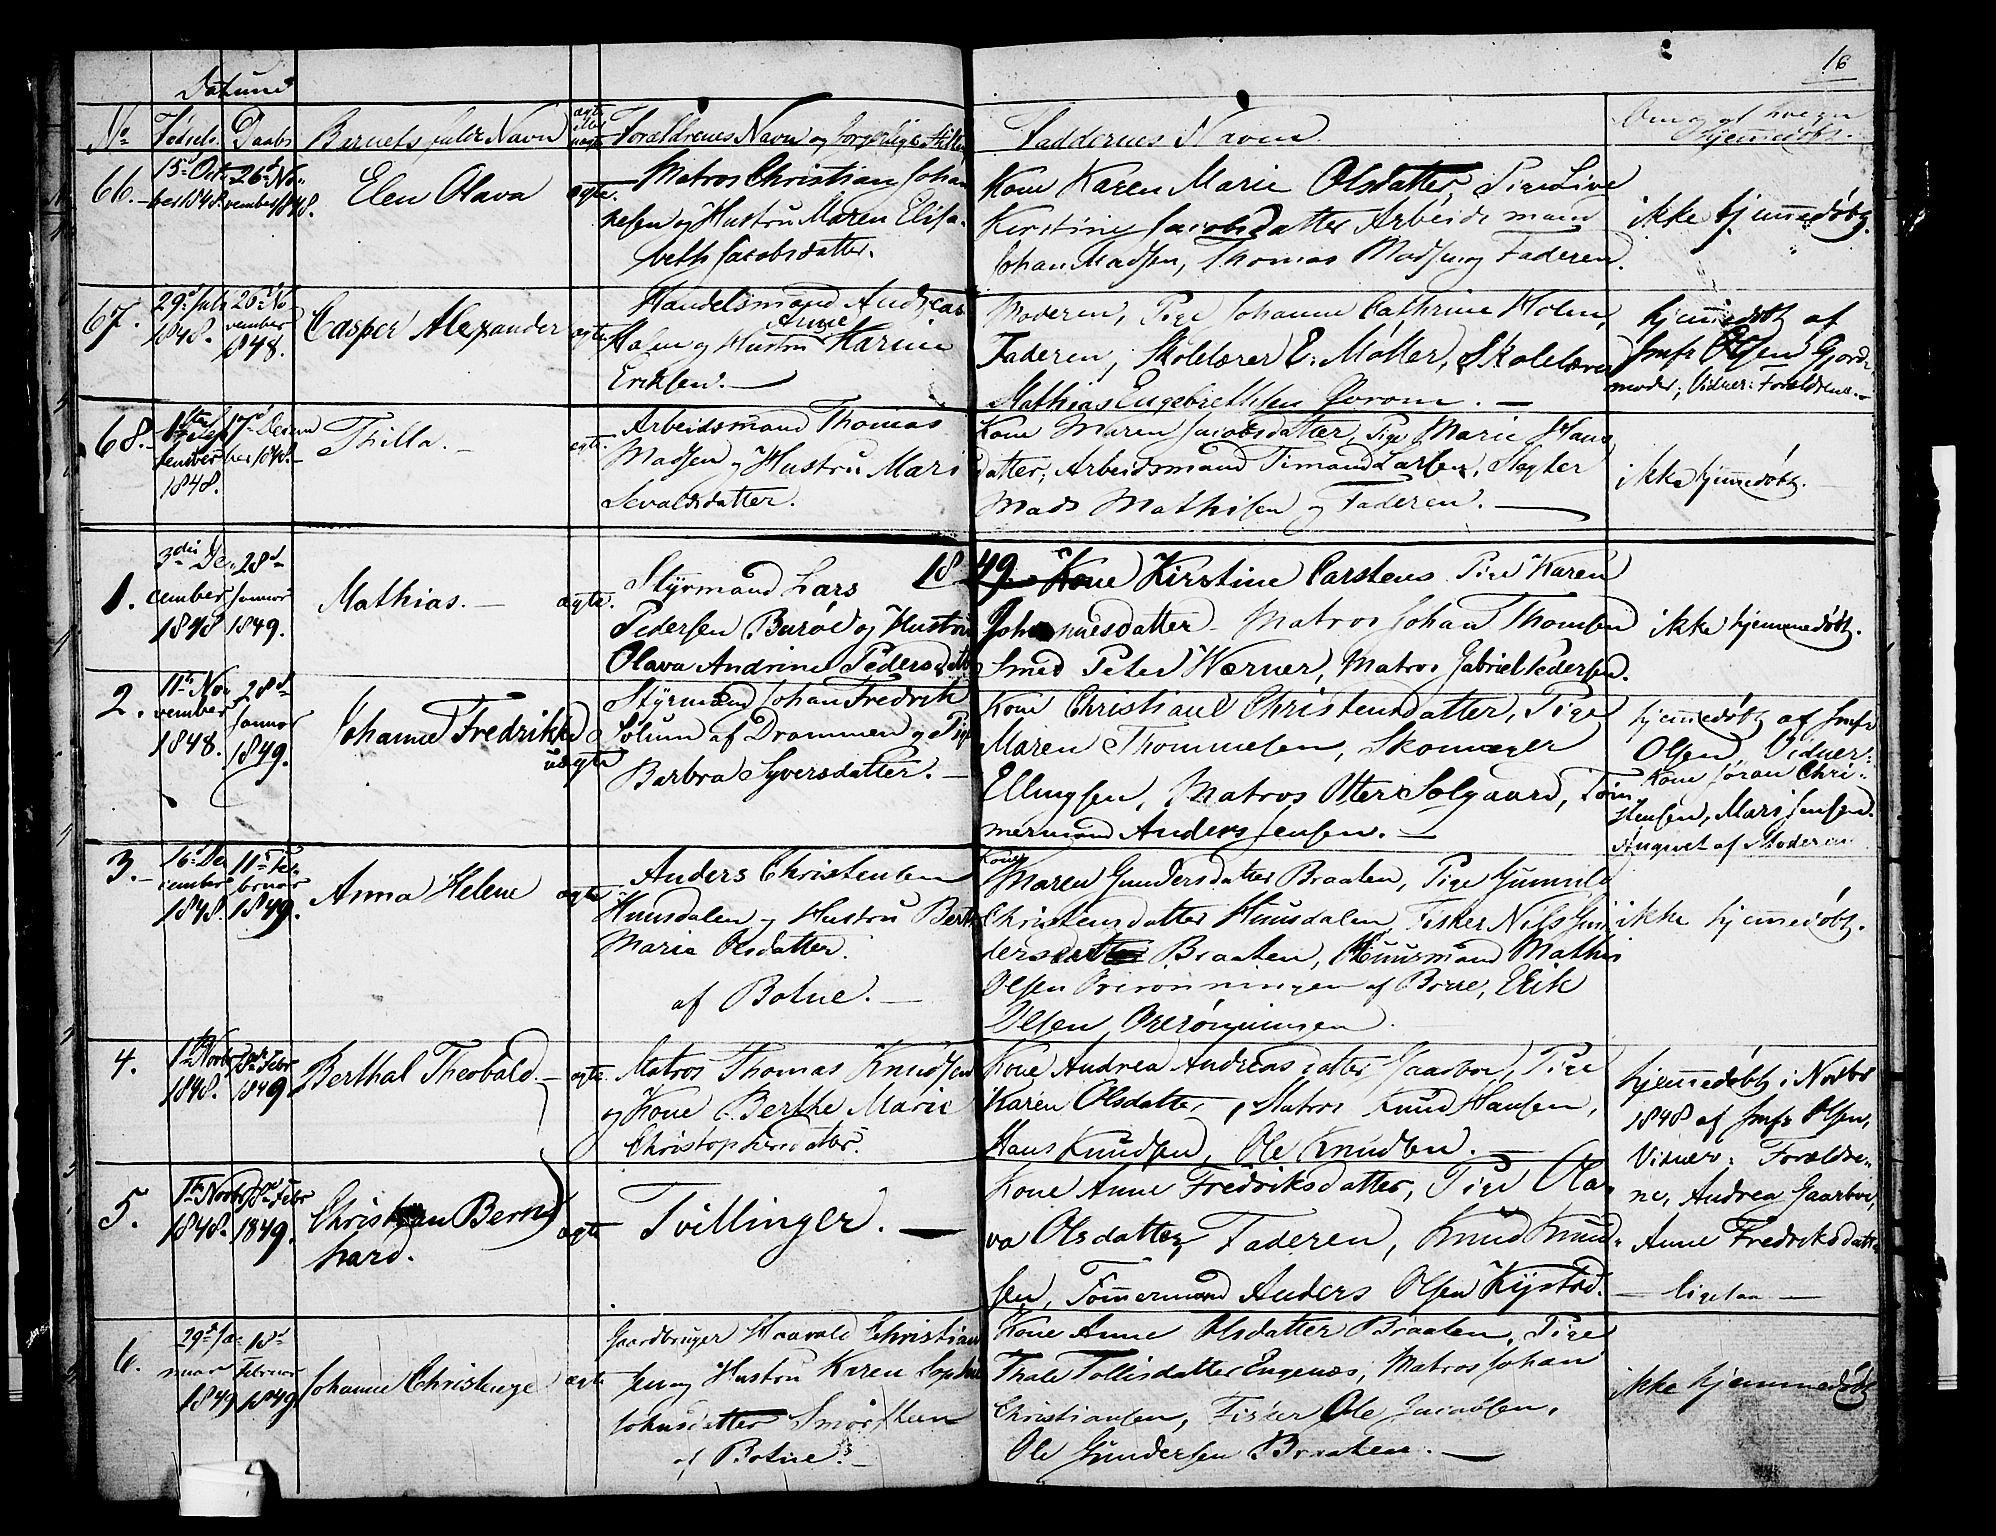 16
Datum
No Fødsels Daabs Barnets fulde Navn ægte eller uægte Forældrenes Navn og borgerlige Stilling Faddernes Navn
hjemmedøbt.
66. 15d Octber 1848. 26d November 1848. Elen Olava ægte. Matros Christian Johan
nesen og Hustru Maren Elisa-
beth Jacobsdatter.
Kone Karen Marie Olsdatter, Pige Live
Kirstine Jacobsdatter Arbeidsmand
Johan Madsen, Thomas Madsen og Faderen.
ikke hjemmedøbt.
67. 29d Juli 1848. 26d November 1848. Casper Alexander ægte Handelsmand Andreas
Holm og Hustru Anne Karine
Eriksen.
Moderen, Pige Johanne Cathrine Holm,
Faderen, Skolelærer E. Møller, Skolelærer
Mathias Engebrethsen
hjemmedøbt af
Jmfr Olsen Gjord-
moder; Vidner: Forældrene.
68. September 1848. 17d December 1848. Thilla. ægte. Arbeidsmand Thomas
Madsen og Hustru Mari
Sevaldsdatter.
Kone Maren Jacobsdatter, Pige Marie Hans
datter, Arbeidsmand Simand Larsen, Slagter
Mads Mathisen og Faderen.
ikke hjemmedøbt.
1849.
1. 3die December 1848 28d Januar 1849. Mathias. ægte. Styrmand Lars
Pedersen Burøe og Hustru
Olava Andrine Pedersdatt
Kone Kirstine Carstens Pige Karen
Johannesdatter Matros Johan Thomsen
Smed Peter Werner, Matros Gabriel Pedersen.
ikke hjemmedøbt.
2. 11te November 1848. 28d Januar 1849. Johanne Fredrikke uægte Styrmand Johan Fredrik
Solum af Drammen og Pige
Barbra Syversdatter.
Kone Christiane Christensdatter, Pige
Maren Thommesen, Skomager
Ellingsen, Matros Otter Solgaard, Tøm
mermand Anders Jensen.
hjemmedøbt af Jmfr
Olsen Vidner:
Kone Jøran Chri-
stensen, Mari Jensen.
Angivet af Moderen
3. 16d December 1848. 11te Februar 1849. Anna Helene ægte Anders Christensen
Huusdalen og Hustru Berth
Marie Olsdatter.
af Botne.
Kone
Maren Gundersdatter Braaten, Pige Gunnild
Christensdatter Huusdalen, Fisker Nils Gun
Braaten, Huusmand Mathis
Olsen af Borre, Erik
Olsen
ikke hjemmedøbt.
4. 1te Novbr 1848. 18de Febr 1849 Berthal Theobald. ægte. Matros Thomas Knudsen
og Kone Berthe Marie
Christophersdatter.
Kone Andrea Andreasdatter Gaarboe, Pige
Karen Olsdatter, Matros Knud Hansen,
Hans Knudsen, Ole Knudsen.
hjemmedøbt i Novbr
1848 af Jmfr Olsen,
Vidner: Forældre-
ne, Andrea Gaarboe,
Anne Fredriksdatter
5. 1te Novbr 1848. 18de Febr 1849. Christian Bern
hard. ægte Tvillinger.
Kone Anne Fredriksdatter, Pige Ola-
va Olsdatter, Faderen, Knud Knud-
sen, Tømmermand Anders Olsen Kystad.
— ligesaa —
6. 29de Januar 1849 18d Februar 1849 Johanne Christine ægte Gaardbruger Haavald Christian
sen og Hustru Karen Sophie
Johnsdatter Smørsteen
af Botne.
Kone Anne Olsdatter Braaten, Pige
Thale Tollisdatter Engenæs, Matros Johan
Christiansen, Fisker Ole Jacobsen,
Ole Gundersen Braaten.
ikke hjemmedøbt